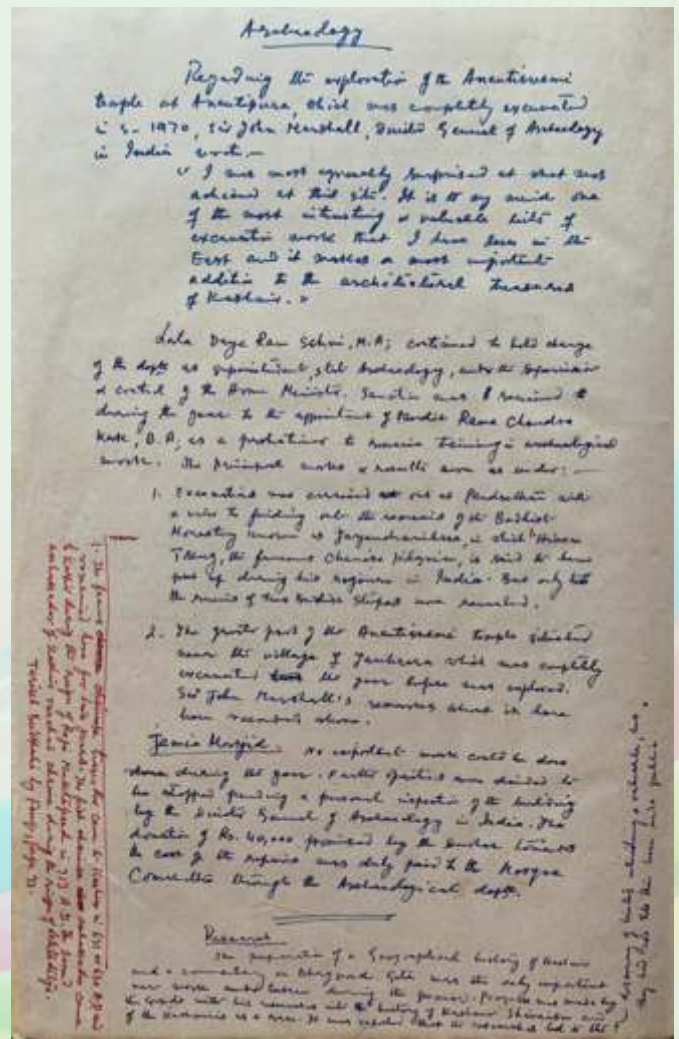 Archaeology
Regarding the exploration of the Avantiswami
temple at Avantipura, which was completely excavated
in S. 1970, Sir John Marshall, Director General of Archaeology
in India wrote, —
"I was most agreeably surprised at what was
achieved at this site. It is to my mind one
of the most interesting & valuable bits of
excavation work that I have seen in the
East and it makes a most important
addition to the architectural treasures
of Kashmir."
Lala Daya Ram Sahni, M.A; continued to hold charge
of the deptt as superintendent, state Archaeology, under the supervision
& control of the Home Minister. Sanction was received
during the year to the appointment of Pandit Rama Chandra
Kak, B.A, as a probationer to receive training in archaeological
work. The principal works & results were as under: —
1. Excavation was carried out at Pandrethan with
a view to finding out the remains of the Budhist
Monastery known as Jayendravihara, in which Hieun
Tsang, the famous Chinese pilgrim, is said to have
put up during his sojourn in India. But only
the ruins of two Budhist Stupas were revealed.
2. The greater part of the Avantiswami temple situated
near the village of which was completely
excavated the year before was explored.
Sir John Marshall's remarks about it have
been recorded above.
Jamia Masjid. No important work could be done
during the year. Further operations were decided to
be stopped pending a personal inspection of the building
by the Director General of Archaeology in India. The
donation of Rs. 40,000 promised by the Durbar towards
the cost of the repairs was duly paid to the Mosque
Committee through the Archaeological deptt.
Research
The preparation of a Geographical history of Kashmir
and a commentary on Bhagwad Gita was the only important
new work undertaken during the period. Progress was made by
the with his researches into the history of Kashmir Shivaism and
of the Kashmiris as a race. It was reported that the researches led to the
discovery of including a valuable, but
they had not till then been made public.
1. The famous Chinese came to Kashmir in 631 A.D. and
remained here for two years. The first Chinese ambassador came
to Kashmir during the reign of Raja in 713 A.D. the second
ambassador of reached during the reign of
by page 71.